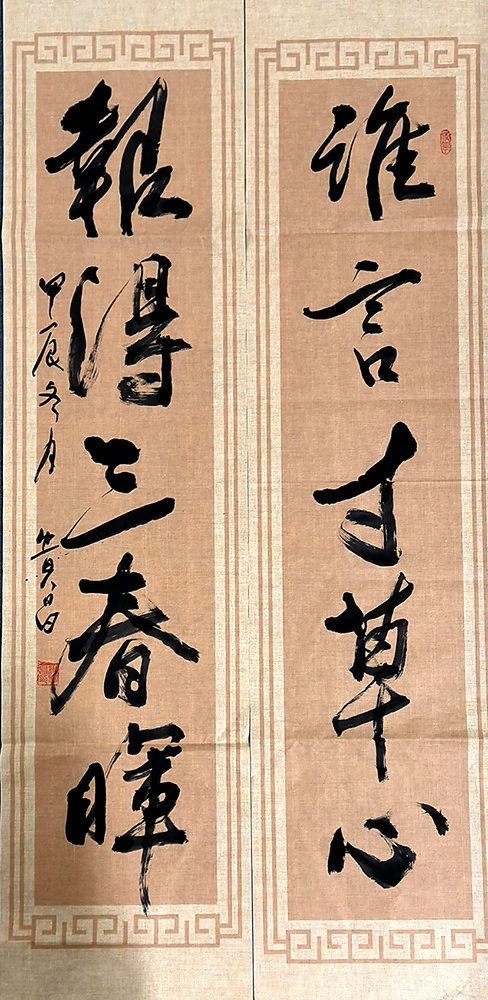 誰言寸草心
報得三春暉
甲辰冬月